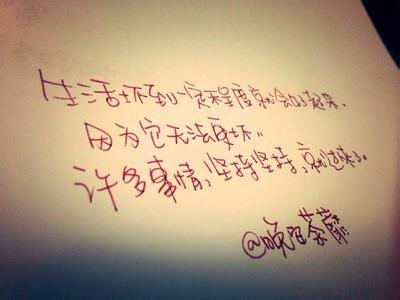 生活坏到一定程度就会好起来,
因为它无法更坏。
许多事情,坚持坚持,就过来了。
@晚